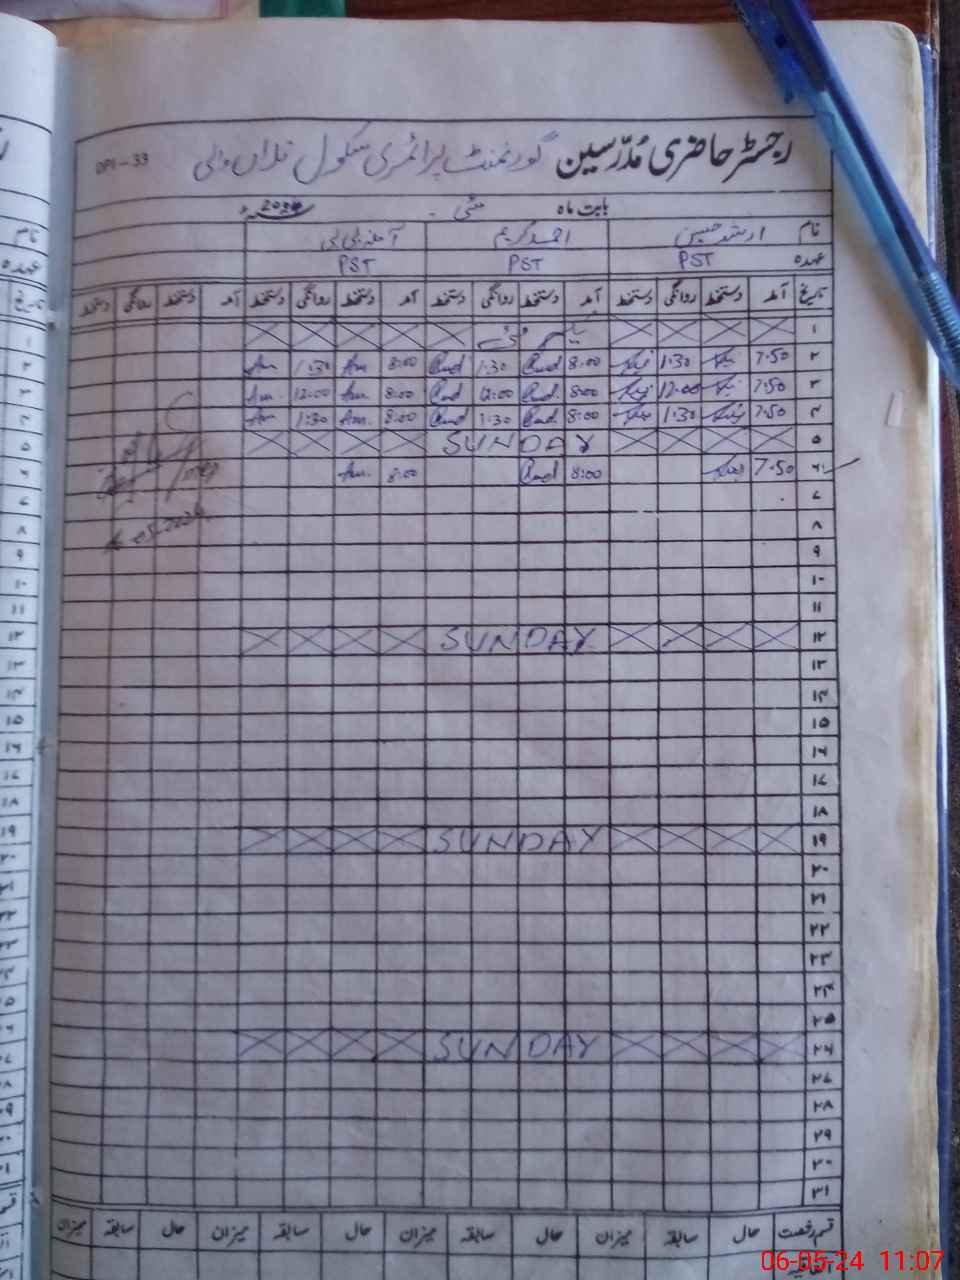 رجسٹر حاضری مُدرّسین گورنمنٹ پرائمری سکول تلاں والی DPI-33
بابت ماہ مئی 2024ء
نام ارشد حسین احمد کریم آمنہ بی بی
عہدہ PST PST PST
تاریخ آمد دستخط روانگی دستخط آمد دستخط روانگی دستخط آمد دستخط روانگی دستخط آمد دستخط روانگی دستخط
۱ یکم مئی
۲ 7:50 1:30 8:00 1:30 8:00 Am 1:30 Am
۳ 7:50 12:00 8:00 12:00 8:00 Am. 12:00 Am.
۴ 7:50 1:30 8:00 1:30 8:00 Am. 1:30 Am
۵ SUNDAY
۶ 7:50 8:00 8:00 Am.
۷
۸
۹
۱۰
۱۱
۱۲ SUNDAY
۱۳
۱۴
۱۵
۱۶
۱۷
۱۸
۱۹ SUNDAY
۲۰
۲۱
۲۲
۲۳
۲۴
۲۵
۲۶ SUNDAY
۲۷
۲۸
۲۹
۳۰
۳۱
قسم رخصت حال سابقہ میزان حال سابقہ میزان حال سابقہ میزان حال سابقہ میزان
اتفاقیہ
06-05-24 11:07